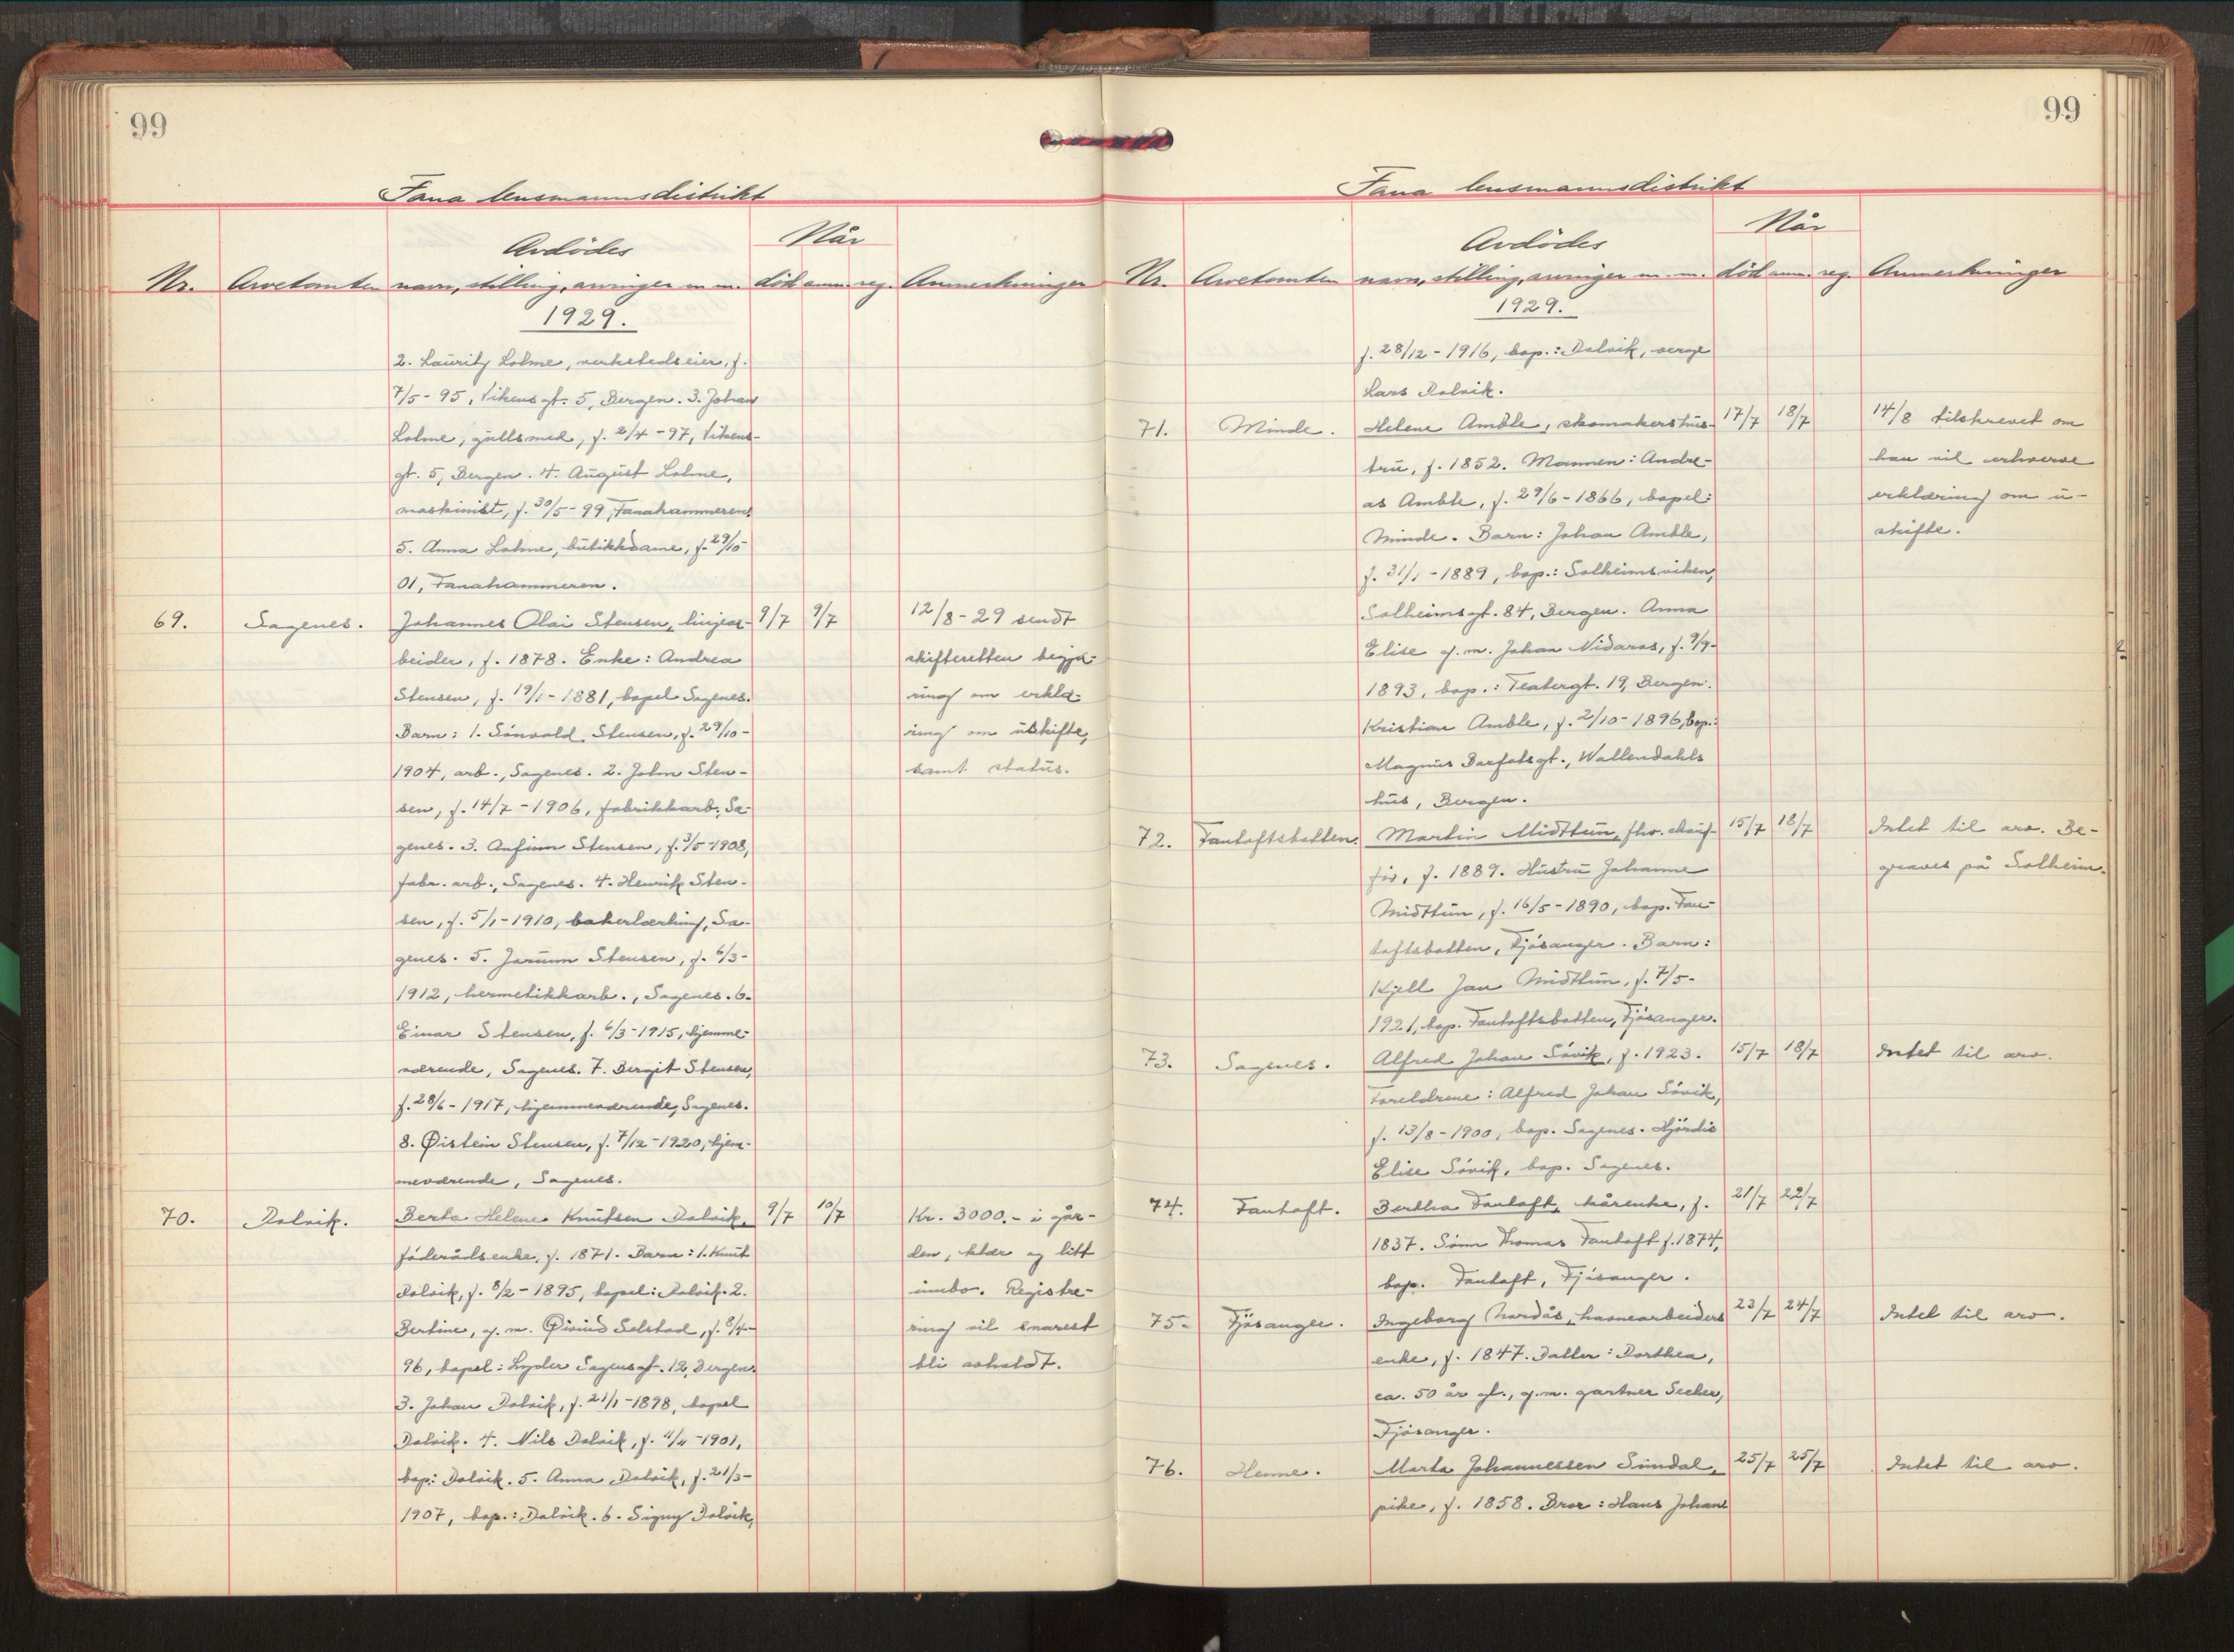 99
Fana lensmannsdistrikt
Avdödes
Når
Nr. Arvetomten navn, stilling, arvinger m.m. död anm. reg. Anmerkninger
1929.
2. Lauritz Lohne, verkstedseier, f.
7/5-95, Vikens gt. 5, Bergen. 3. Johan
Lohne, gullsmed, f. 2/4-97, Vikens-
gt. 5, Bergen. 4. August Lohne,
maskinist, f. 30/5-99, Fanahammeren.
5. Anna Lohne, butikkdame, f. 29/10-
01, Fanahammeren.
69. Sagenes. Johannes Olai Stensen, linjear- 9/7 9/7 12/8-29 sendt
beider, f. 1878. Enke: Andrea skifteretten begjæ-
Stensen, f. 19/1-1881, bopel Sagenes. ring om erklæ-
Barn: 1. Sönvald Stensen, f. 29/10- ring om uskifte,
1904, arb., Sagenes. 2. John Sten- samt status.
sen, f. 14/7-1906, fabrikkarb., Sa-
genes. 3. Anfinn Stensen, f. 3/5-1908,
fabr. arb., Sagenes. 4. Henrik Sten-
sen, f. 5/1-1910, bakerlærling, Sa-
genes. 5. Jorunn Stensen, f. 6/3-
1912, hermetikkarb., Sagenes. 6.
Einar Stensen, f. 6/3-1915, hjemme-
værende, Sagenes. 7. Bergit Stensen,
f. 28/6-1917, hjemmeværende, Sagenes.
8. Øistein Stensen, f. 7/12-1920, hjem-
meværende, Sagenes.
70. Dolvik. Berta Helene Knutsen Dolvik, 9/7 10/7 Kr. 3000.- i går-
föderådsenke, f. 1871. Barn: 1. Knut den, klær og litt
Dolvik, f. 8/2-1895, bopel: Dolvik. 2. innbo. Registre-
Bertine, g. m. Øivind Selstad, f. 8/4- ring vil snarest
96, bopel: Lyder Sagensgt. 12, Bergen. bli avholdt.
3. Johan Dolvik, f. 21/1-1898, bopel
Dolvik. 4. Nils Dolvik, f. 11/11-1901,
bop: Dolvik. 5. Anna Dolvik, f. 21/3-
1907, bop.: Dolvik. 6. Signy Dolvik,
99
Fana lensmannsdistrikt
Avdödes
Når
Nr. Arvetomten navn, stilling, arvinger m.m. död anm. reg. Anmerkninger
1929.
f. 28/12-1916, bop.: Dolvik, verge
Lars Dolvik.
71. Minde. Helene Amble, skomakershus- 17/7 18/7 14/8 tilskrevet om
tru, f. 1852. Mannen: Andre- han vil erhverve
as Amble, f. 29/6-1866, bopel: erklæring om u-
Minde. Barn: Johan Amble, skifte.
f. 31/1-1889, bop.: Solheimsviken,
Solheimsgt. 84, Bergen. Anna
Elise g. m. Johan Nidaros, f. 9/9-
1893, bop.: Teatergt. 19, Bergen.
Kristian Amble, f. 2/10-1896, bop.:
Magnus Barfotsgt., Wallendahls
hus, Bergen.
72. Fantoftsbotten. Martin Midttun, fhv. 15/7 18/7 Intet til arv. Be-
för, f. 1889. Hustru Johanne graves på Solheim.
Midttun, f. 16/5-1890, bop. Fan-
toftsbotten, Fjösanger. Barn:
Kjell Jan Midttun, f. 7/5-
1921, bop. Fantoftsbotten, Fjösanger.
73. Sagenes. Alfred Johan Sövik, f. 1923. 15/7 18/7 Intet til arv.
Foreldrene: Alfred Johan Sövik,
f. 13/8-1900, bop. Sagenes. Hjördis
Elise Sövik, bop. Sagenes.
74. Fantoft. Bertha Fantoft, kårenke, f. 21/7 22/7
1837. Sönn Thomas Fantoft f. 1874,
bop. Fantoft, Fjösanger.
75. Fjösanger. Ingeborg Nordås, havnearbeiders 23/7 24/7 Intet til arv.
enke, f. 1847. Datter: Dorthea,
ca. 50 år gl., g.m. gartner Seeber,
Fjösanger.
76. Henne. Marta Johannessen Sundal, 25/7 25/7 Intet til arv.
pike, f. 1858. Bror: Hans Johans